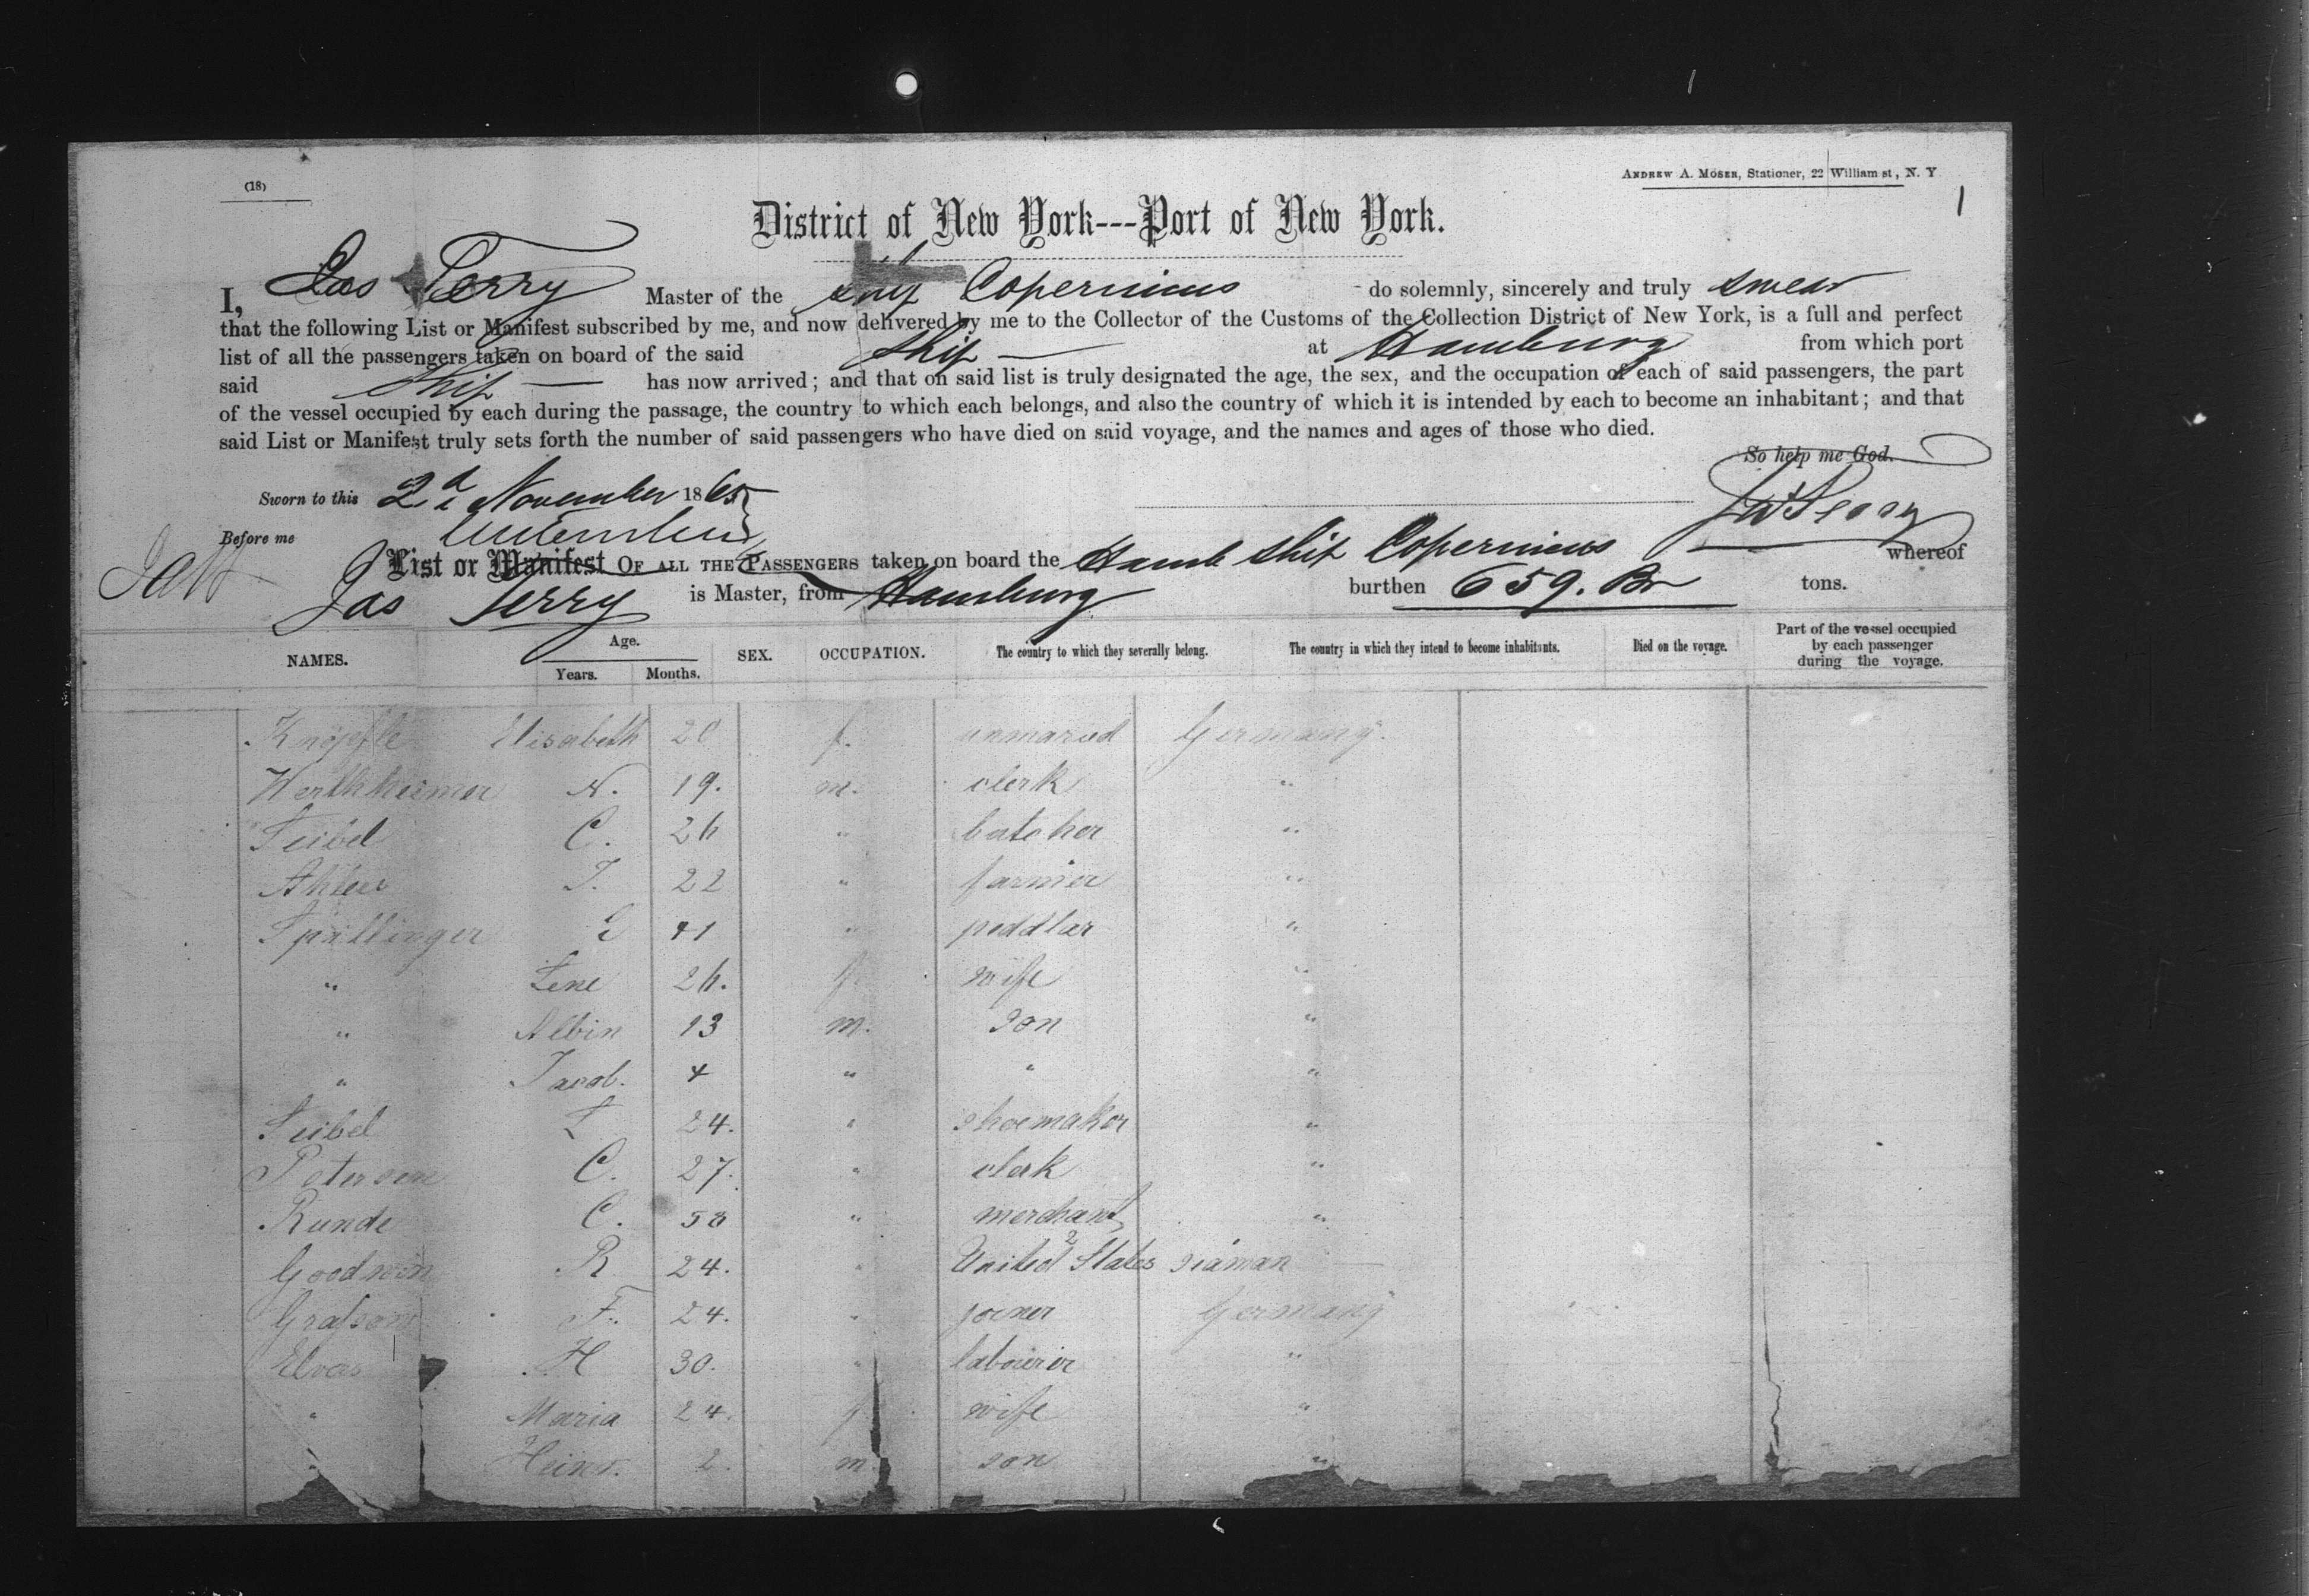 (18)
ANDREW A. MOSER, Stationer, 22 William st, N. Y
1
District of New York---Port of New York.
I, Jas Terry Master of the ship Copernicus do solemnly, sincerely and truly swear
that the following List or Manifest subscribed by me, and now delivered by me to the Collector of the Customs of the Collection District of New York, is a full and perfect
list of all the passengers taken on board of the said ship at Hamburg from which port
said ship has now arrived; and that on said list is truly designated the age, the sex, and the occupation of each of said passengers, the part
of the vessel occupied by each during the passage, the country to which each belongs, and also the country of which it is intended by each to become an inhabitant; and that
said List or Manifest truly sets forth the number of said passengers who have died on said voyage, and the names and ages of those who died.
So help me God.
Sworn to this 2d November 1865
Before me
List or Manifest OF ALL THE PASSENGERS taken on board the Hamb ship Copernicus whereof
Jas Terry is Master, from Hamburg burthen 659. tons.
NAMES. Age. Years. Months. SEX. OCCUPATION. The country to which they severally belong. The country in which they intend to become inhabitants. Died on the voyage. Part of the vessel occupied by each passenger during the voyage.
Elisabeth 20 f. unmaried Germany.
N. 19. m. clerk "
C. 26 " butcher "
22 " farmer "
41 " peddlar "
" Lene 26. f. wife "
" Albin 13 m. son "
" Jacob. 4 " " "
Seibel 24. " shoemaker "
Petersen C. 27. " clerk "
Runde C. 58 " merchant "
Goodwin R 24. " United States seaman
F. 24. " joiner Germany
H 30. " labourer "
" Maria 24. f. wife "
" Heinr. 2. m. son "